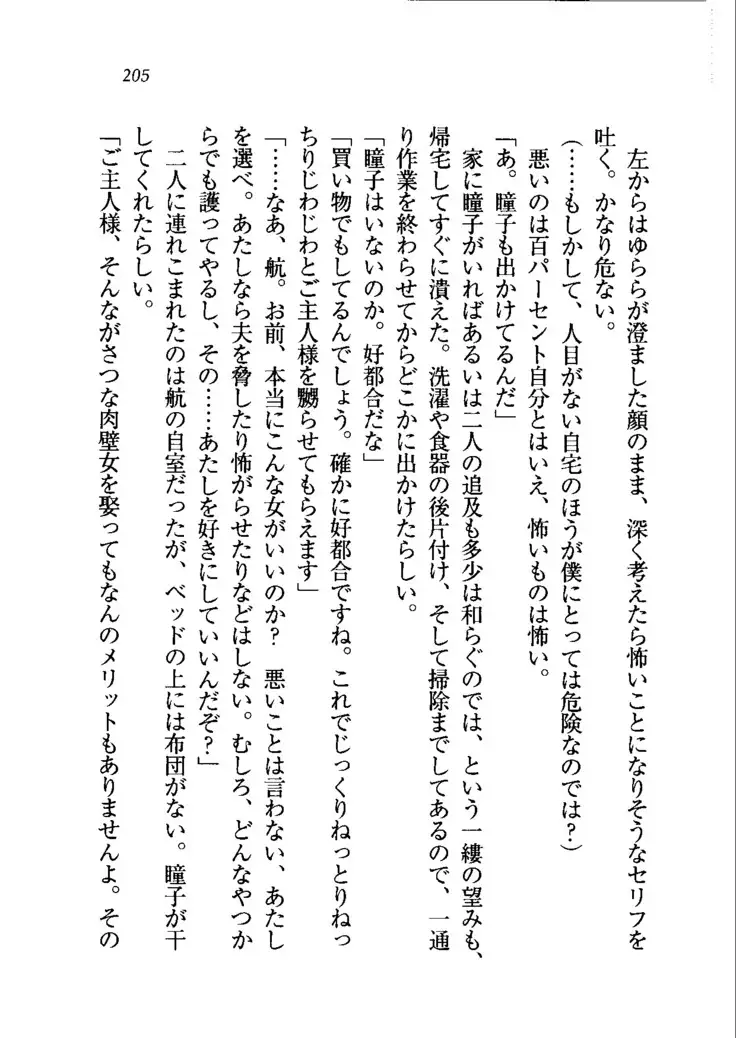 205
左からはゆららが澄ました顔のまま、深く考えたら怖いことになりそうなセリフを
吐く。かなり危ない。
(……もしかして、人目がない自宅のほうが僕にとっては危険なのでは?)
悪いのは百パーセント自分とはいえ、怖いものは怖い。
「あ。瞳子も出かけてるんだ」
家に瞳子がいればあるいは二人の追及も多少は和らぐのでは、という一縷の望みも、
帰宅してすぐに潰えた。洗濯や食器の後片付け、そして掃除までしてあるので、一通
り作業を終わらせてからどこかに出かけたらしい。
「瞳子はいないのか。好都合だな」
「買い物でもしてるんでしょう。確かに好都合ですね。これでじっくりねっとりねっ
ちりじわじわとご主人様を嬲らせてもらえます」
「……なあ、航。お前、本当にこんな女がいいのか? 悪いことは言わない、あたし
を選べ。あたしなら夫を脅したり怖がらせたりなどはしない。むしろ、どんなやつか
らでも護ってやるし、その……あたしを好きにしていいんだぞ?」
二人に連れこまれたのは航の自室だったが、ベッドの上には布団がない。瞳子が干
してくれたらしい。
「ご主人様、そんながさつな肉壁女を娶ってもなんのメリットもありませんよ。その